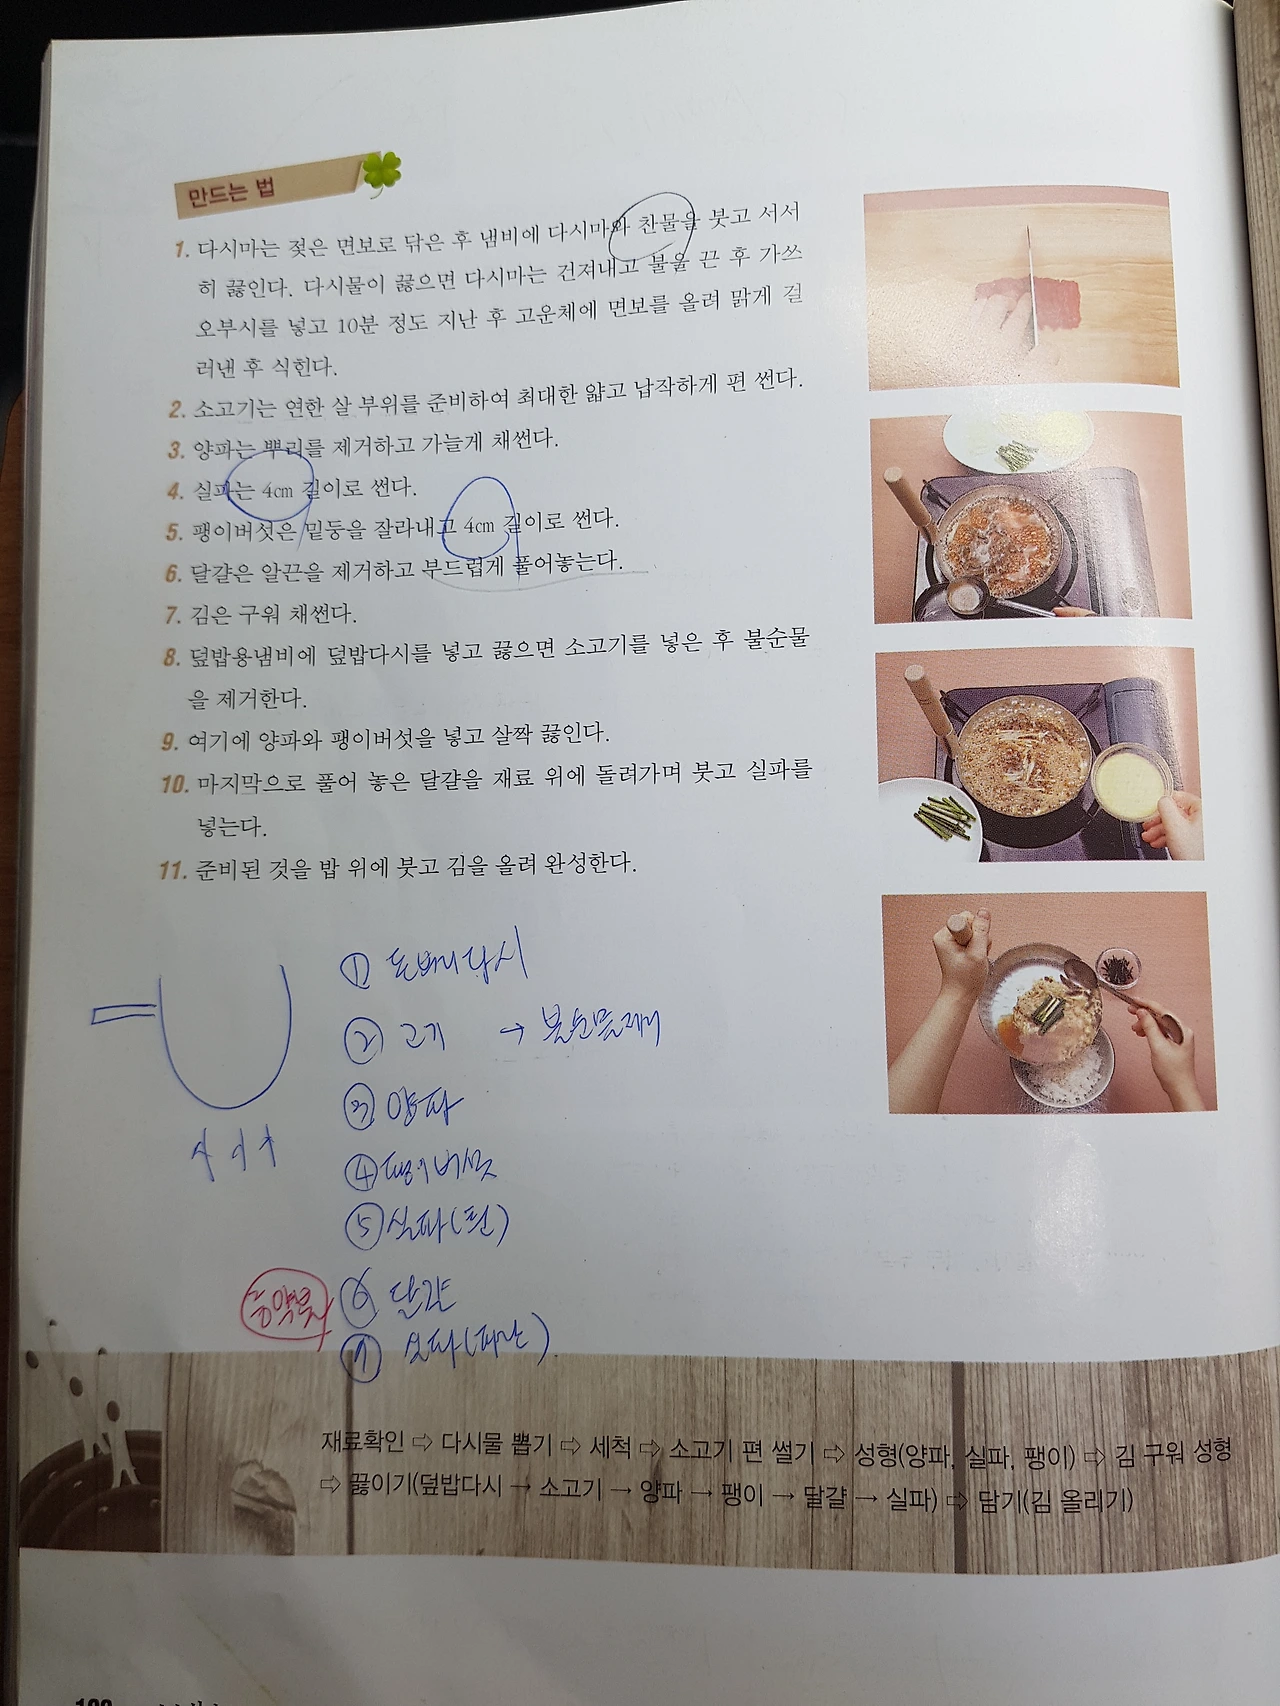 만드는 법
1. 다시마는 젖은 면보로 닦은 후 냄비에 다시마와 찬물을 붓고 서서
히 끓인다. 다시물이 끓으면 다시마는 건져내고 불을 끈 후 가쓰
오부시를 넣고 10분 정도 지난 후 고운체에 면보를 올려 맑게 걸
러낸 후 식힌다.
2. 소고기는 연한 살 부위를 준비하여 최대한 얇고 납작하게 편 썬다.
3. 양파는 뿌리를 제거하고 가늘게 채썬다.
4. 실파는 4㎝ 길이로 썬다.
5. 팽이버섯은 밑둥을 잘라내고 4㎝ 길이로 썬다.
6. 달걀은 알끈을 제거하고 부드럽게 풀어놓는다.
7. 김은 구워 채썬다.
8. 덮밥용냄비에 덮밥다시를 넣고 끓으면 소고기를 넣은 후 불순물
을 제거한다.
9. 여기에 양파와 팽이버섯을 넣고 살짝 끓인다.
10. 마지막으로 풀어 놓은 달걀을 재료 위에 돌려가며 붓고 실파를
넣는다.
11. 준비된 것을 밥 위에 붓고 김을 올려 완성한다.
① 돈버리다시
② 고기 → 불순물제거
③ 양파
④ 팽이버섯
⑤ 실파(흰)
⑥ 달걀
⑦ 실파(파란)
재료확인 ⇨ 다시물 뽑기 ⇨ 세척 ⇨ 소고기 편 썰기 ⇨ 성형(양파, 실파, 팽이) ⇨ 김 구워 성형
⇨ 끓이기(덮밥다시 → 소고기 → 양파 → 팽이 → 달걀 → 실파) ⇨ 담기(김 올리기)